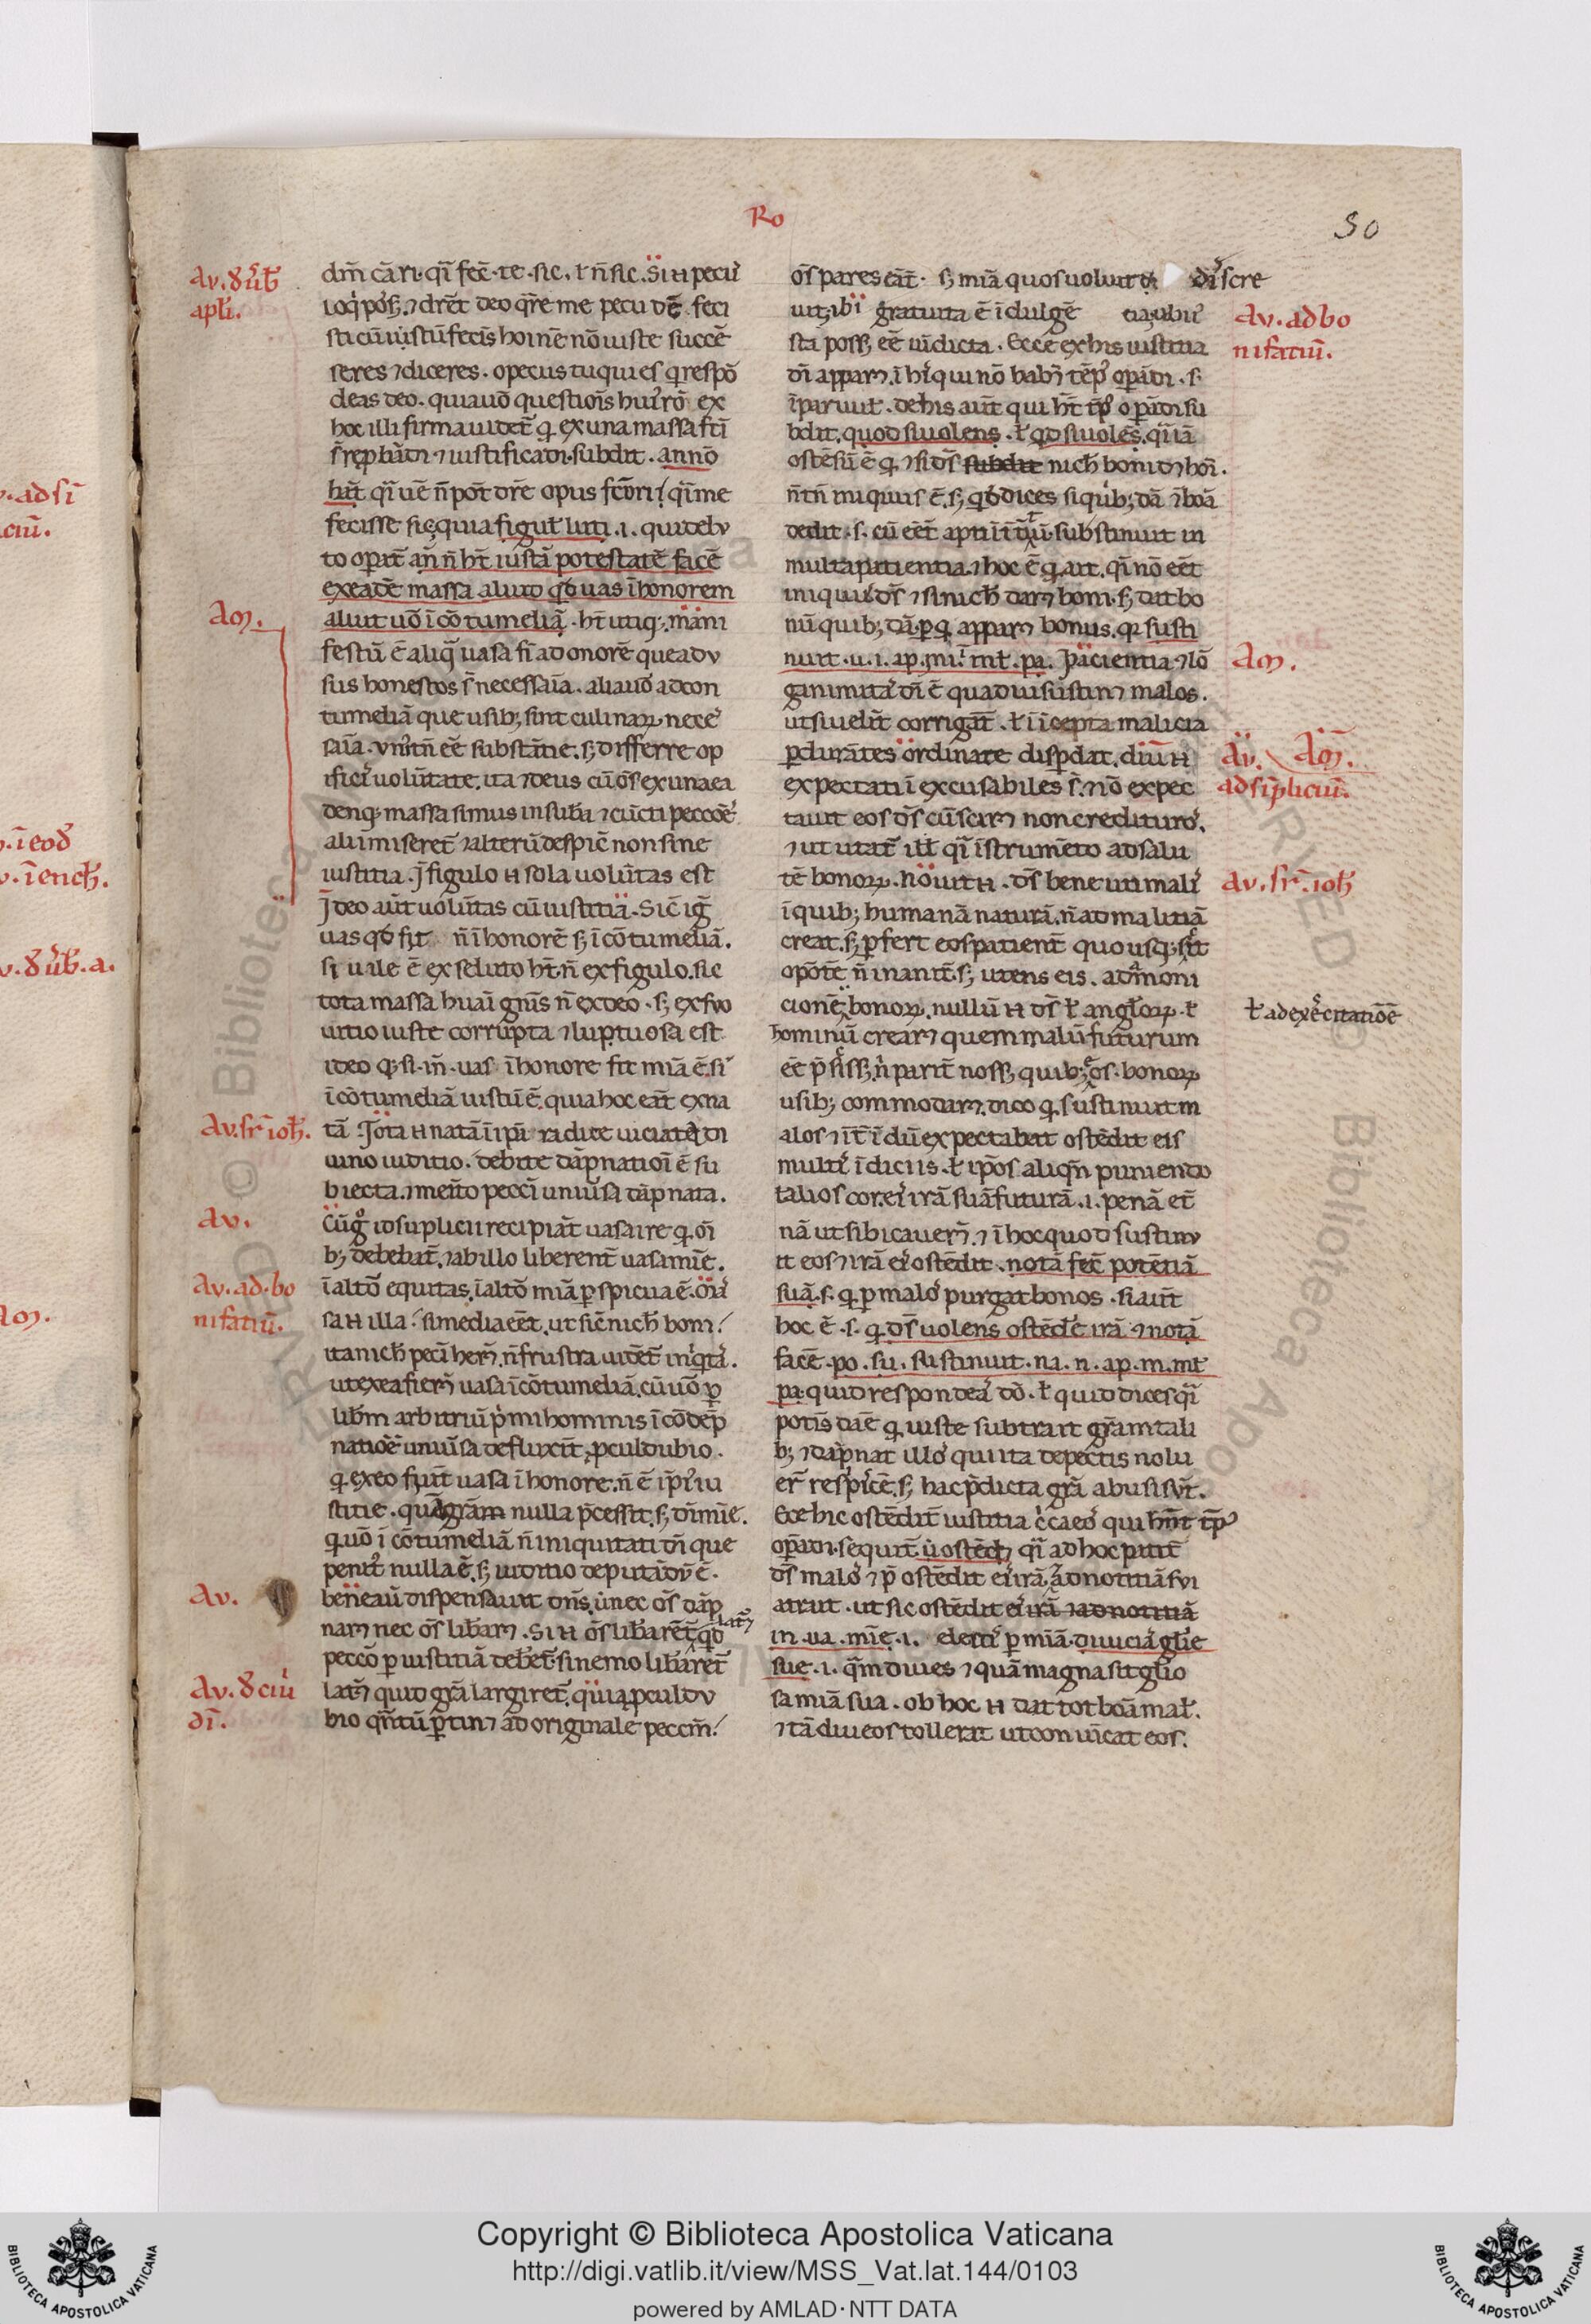 Ro
50
Av. d' v'b
apl'i.
dm̄ cāri. qī fec̄. te. sic. ł n̄ sic. Si н pecu'
ioq' poss; ⁊ dr̄et deo qr̄e me pecudē feci
sti cū iustū fecis hoinē nō iuste succē
seres ⁊ diceres. o pecus tu quis es q respō
deas deo. quia uō questiōis hui' rō ex
hoc illi firma uidet̄ q ex una massa fci
s̄ rep̄bādi ⁊ iustificandi. subdit. an nō
hāt qī ue n̄ pōt dr̄e opus fc̄ori qī me
fecisse sic, quia figul' luti .i. qui de lu
to opat̄ an̄ n̄ ht̄ iustā potestatē facē
ex eadē massa aliud qd uas ī honorem
aliut uō ī cōtumeliā. ht̄ utiq;. mani
festū ē aliq̄ uasa fi ad onorē que ad u
sus honestos s̄ necessaīa. alia uō ad con
tumeliā que usib; sint culinarꝝ nece
saīa. uni' tn̄ eē substātie. s; differre op
ifici' uolūtate. ita ⁊ deus cū ōs ex una ea
denq; massa simus in suba ⁊ cūcti peccōē'
alii miseret̄ ⁊ alterū despic̄ non sine
iustitia. J̄ figulo н sola uolūtas est
J̄ deo aūt uolūtas cū iustitiā. Sic̄ iḡ
uas qd fit n̄ ī honorē s; ī cōtumeliā.
si uile ē ex se luto ht̄. n̄ ex figulo. sic
tota massa huāi gn̄is n̄ ex deo. s; ex suo
uitio iuste corrupta ⁊ luptuosa est
ideo q; si. in̄. uas ī honore fit miā ē. si'
ī cōtumeliā iustū ē. quia hoc eāt ex na
tā. Jota н natā ī ipī radice uiciatē di
uino iuditio. debite dāpnatiōi ē su
biecta. ⁊ merito pecci uniu'sa dāpnata.
Cūg° id suplicii recipiāt uasa ire q ōi
b; debebat̄. ⁊ ab illo liberent̄ uasa mīe.
ī altō equitas. ī altō miā pspicua ē. ōii'
sa н illa. si media eēt. ut sic̄ nich' boni
ita nich' peci her̄. n̄ frustra uidēt̄ iniq̄tā.
ut ex ea fier̄ uasa ī cōtumeliā. cū uō p
libm arbitriū p'mi hominis ī cōdēp
natiōē uniu'sa defluxit. pculdubio.
q ex eo fiūt uasa ī honore. n̄ ē ip̄i' iu
stitie. que grām nulla p̄cessit. s; dī mīe.
quō ī cōtumeliā n̄ iniquitati dī que
penit' nulla ē. s; iuditio deputādū ē.
bene aū dispensauit dn̄s. ū nec ōs dāp
nar̄ nec ōs libar̄. Si н ōs libarēt̄ qd
peccō p iustitiā debet̄. si nemo libaret̄
lat̄ quid grā largiret̄. quia pculdu
bio qn̄tū ptin; ad originale peccm̄.
Am.
Av. sr̄ ioh'.
Av.
Av. ad bo
nifatiū.
Av.
Av. d' ciu'
dī.
ōs pares eāt. s; miā quos uoluit discre
uit; ibi gratuita ē īdulgē tia, ubi
sta poss; eē uīdicta. Ecce ex his iustitia
dī appar̄. ī hi' qui nō hab̄ tēp' opādi. s.
ī paruul'. de his aūt qui ht̄ tp̄s opādi su
bdit. quod si uolens. ł qd si uolēs. q̄ iā
ostēsū ē q ⁊ si ds̄ subdit nich' boni d; hoī.
n̄ tn̄ iniquus ē. s; qd dices si quib; dā ⁊ boā
dedit. s. cū eēt apti ī t̄tū. substinuit in
multa patientia. ⁊ hoc ē q ait. qī nō eēt
iniquus ds̄ ⁊ si nich' dar̄ boni. s; dat bo
nū quib; dā. p q appar̄ bonus. q susti
nuit. u. i. ap. mi. int. pa. Paciencia ⁊ lō
ganimitas dī ē qua diu sustin; malos.
ut si uelīt corrigat̄. ł ī īcepta malicia
pdurātes ordinate dispdat. diū н
expectati ī excusabiles s̄. nō expec
tauit eos ds̄ cū scir̄ non credituro'.
⁊ ut utat̄ ill' qī īstrumēto ad salu
tē bonorꝝ. Nouit н. ds̄ bene uti mali'
ī quib; humanā naturā. n̄ ad malitiā
creat. s; pfert eos patient̄ quousq; sit
opōt̄ē n̄ inanit̄. s; utens eis. ad m̄oni
cionē bonorꝝ. nullū н ds̄ ł anglorꝝ. ł
hominū crear̄ quem malū futurum
eē p̄sciss;. n̄ parit̄ noss; quib; eos. bonorꝝ
usib; commodar̄. dico q sustinuit m
alos ⁊ īt̄ī dū expectabat ostēdit eis
multi' īdiciis. ł ip̄os aliqn̄ puniendo
tal'ios cor. ei' irā suā futurā .i. penā et̄
nā ut sibi cauer̄. ⁊ ī hoc quod sustinu
it eos ⁊ irā ei' ostēdit. notā fec̄ potētiā
suā. s. q p malo' purgat bonos. si aūt
hoc ē. s. q ds̄ uolens ostēdē irā ⁊ notā
facē. po. su. sustinuit. na. n. ap. m. int
pa. quid respondea' dō. ł quid dices qī
potīs dāē q iuste subtrait grām tali
b; ⁊ dāpnat illo' qui ita depectis nolu
er̄ respicē. s; hac p̄dicta grā abusi sūt.
Ecce hic ostēdit̄ iustitia c̄ ca eo' qui hnt tp̄
opādi. sequit̄ ū ostēd; qī ad hoc patit̄
ds̄ malo' ⁊ p̄ ostēdit ei' irā. ad notitiā sui
atrait. ut sic ostēdit ei' irā ⁊ ad notitiā
in. ua. mīe .i. electi' p miā. diuicia' gl'ie
sue .i. q̄m diues ⁊ quā magna sit glīo
sa miā sua. ob hoc н dat tot boā mal'.
⁊ tā diu eos tollerat ut conuīcat eos.
Av. ad bo
nifatiū.
Am.
Av. Am.
ad sīpliciū.
Av. sr̄. ioh'
ł ad exercitatiōē
v. ad sī
ciū.
v. ī eod'
v. ī ench'.
v. d' v'b. a.
Am.
Copyright © Biblioteca Apostolica Vaticana
http://digi.vatlib.it/view/MSS_Vat.lat.144/0103
powered by AMLAD·NTT DATA
BIBLIOTECA APOSTOLICA VATICANA
BIBLIOTECA APOSTOLICA VATICANA